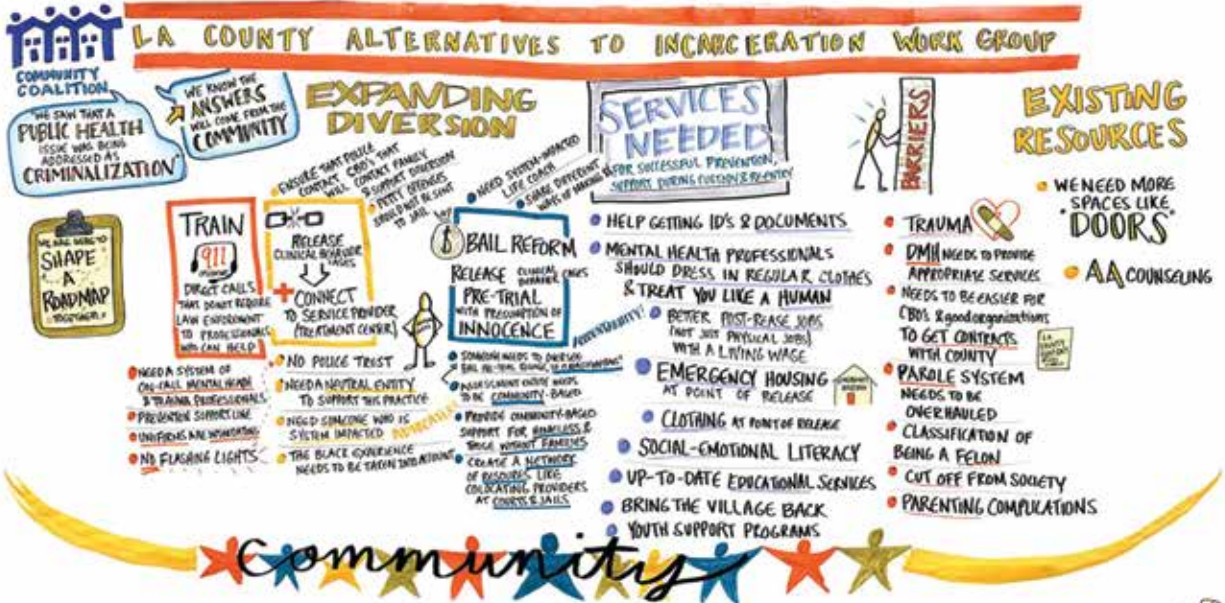 LA COUNTY ALTERNATIVES TO INCARCERATION WORK GROUP
COMMUNITY
COALITION
WE SAW THAT A
PUBLIC HEALTH
ISSUE WAS BEING
ADDRESSED AS
CRIMINALIZATION"
WE KNOW THE
ANSWERS
WILL COME FROM THE
COMMUNITY
WE ARE HERE TO
SHAPE
A
ROADMAP
TOGETHER
EXPANDING
DIVERSION
TRAIN
911
DIRECT CALLS
THAT DO NOT REQUIRE
LAW ENFORCEMENT
TO PROFESSIONALS
WHO CAN HELP
NEED A SYSTEM OF
ON-CALL MENTAL HEALTH
& TRAUMA PROFESSIONALS
PREVENTION SUPPORT LINE
UNIFORMS ARE INTIMIDATING
NO FLASHING LIGHTS
ENSURE THAT POLICE
CONTACT CBO'S THAT
WILL CONTACT FAMILY
& SUPPORT DIVERSION
PETTY OFFENSES
SHOULD NOT BE SENT
TO JAIL
RELEASE
CLINICAL BEHAVIOR
CASES
CONNECT
TO SERVICE PROVIDER
(TREATMENT CENTER)
NO POLICE TRUST
NEED A NEUTRAL ENTITY
TO SUPPORT THIS PRACTICE
NEED SOMEONE WHO IS
SYSTEM IMPACTED
THE BLACK EXPERIENCE
NEEDS TO BE TAKEN INTO ACCOUNT
NEED SYSTEM-IMPACTED
LIFE COACH
SHARE DIFFERENT
WAYS OF MAKING $
BAIL REFORM
RELEASE CLINICAL BEHAVIOR CASES
PRE-TRIAL
WITH PRESUMPTION OF
INNOCENCE
SOMEONE NEEDS TO OVERSEE
ASSESSMENT ENTITY NEEDS
TO BE COMMUNITY-BASED
PROVIDE COMMUNITY-BASED
SUPPORT FOR HOMELESS &
THOSE WITHOUT FAMILIES
CREATE A NETWORK
OF RESOURES LIKE
COLOCATING PROVIDERS
AT COURTS & JAILS
SERVICES
NEEDED
FOR SUCCESSFUL PREVENTION,
SUPPORT DURING CUSTODY & RE-ENTRY
HELP GETTING ID'S & DOCUMENTS
MENTAL HEALTH PROFESSIONALS
SHOULD DRESS IN REGULAR CLOTHES
& TREAT YOU LIKE A HUMAN
BETTER POST-REASE JOBS
(NOT JUST PHYSICAL JOBS)
WITH A LIVING WAGE
EMERGENCY HOUSING
AT POINT OF RELEASE
CLOTHING AT POINT OF RELEASE
SOCIAL-EMOTIONAL LITERACY
UP-TO-DATE EDUCATIONAL SERVICES
BRING THE VILLAGE BACK
YOUTH SUPPORT PROGRAMS
BARRIERS
TRAUMA
DMH NEEDS TO PROVIDE
APPROPRIATE SERVICES
NEEDS TO BE EASIER FOR
CBO'S & good organizations
TO GET CONTRACTS
WITH COUNTY
PAROLE SYSTEM
NEEDS TO BE
OVERHAULED
CLASSIFICATION OF
BEING A FELON
CUT OFF FROM SOCIETY
PARENTING COMPLICATIONS
EXISTING
RESOURCES
WE NEED MORE
SPACES LIKE
"DOORS"
AA COUNSELING
Community